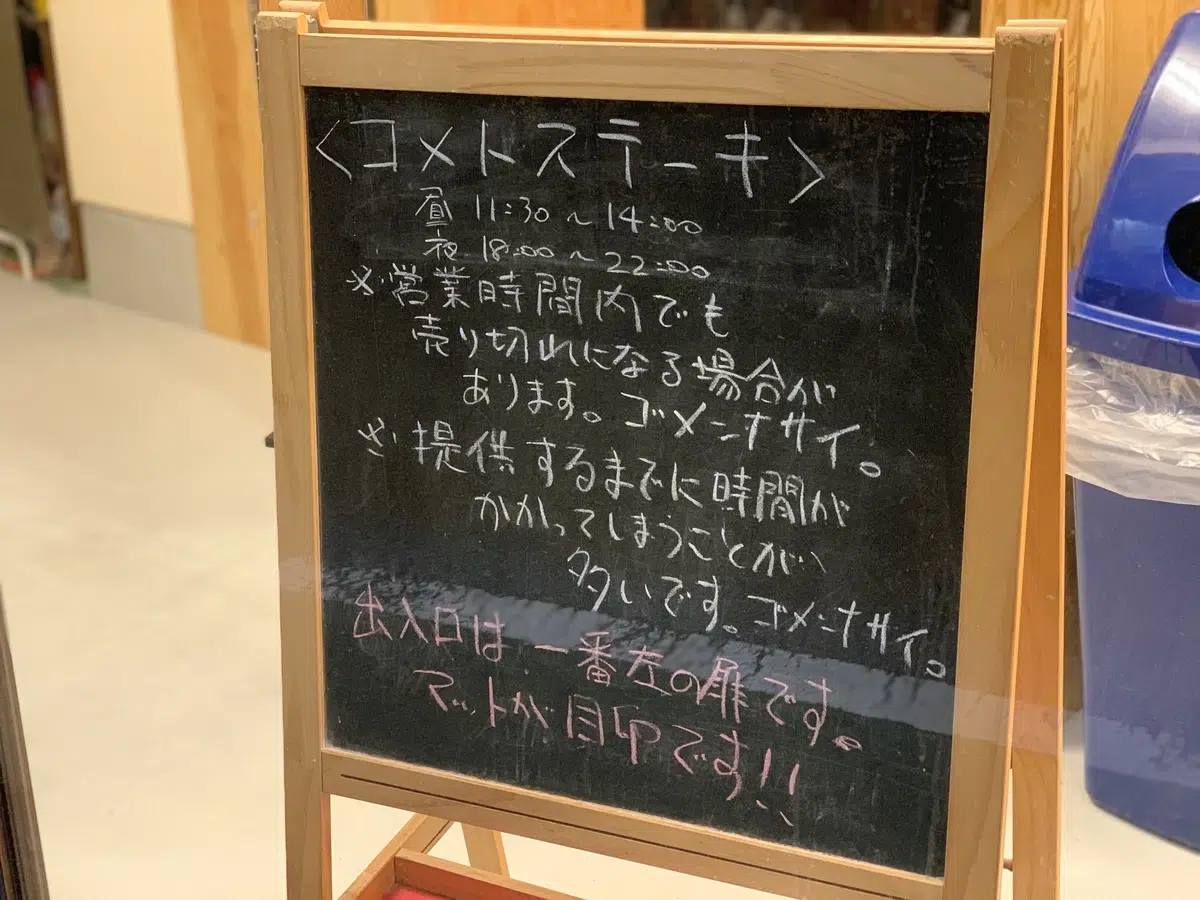 〈コメトステーキ〉
昼 11:30〜14:00
夜 18:00〜22:00
※営業時間内でも
売り切れになる場合が
あります。ゴメンナサイ。
※提供するまでに時間が
かかってしまうことが
多いです。ゴメンナサイ。
出入口は一番左の扉です。
マットが目印です!!